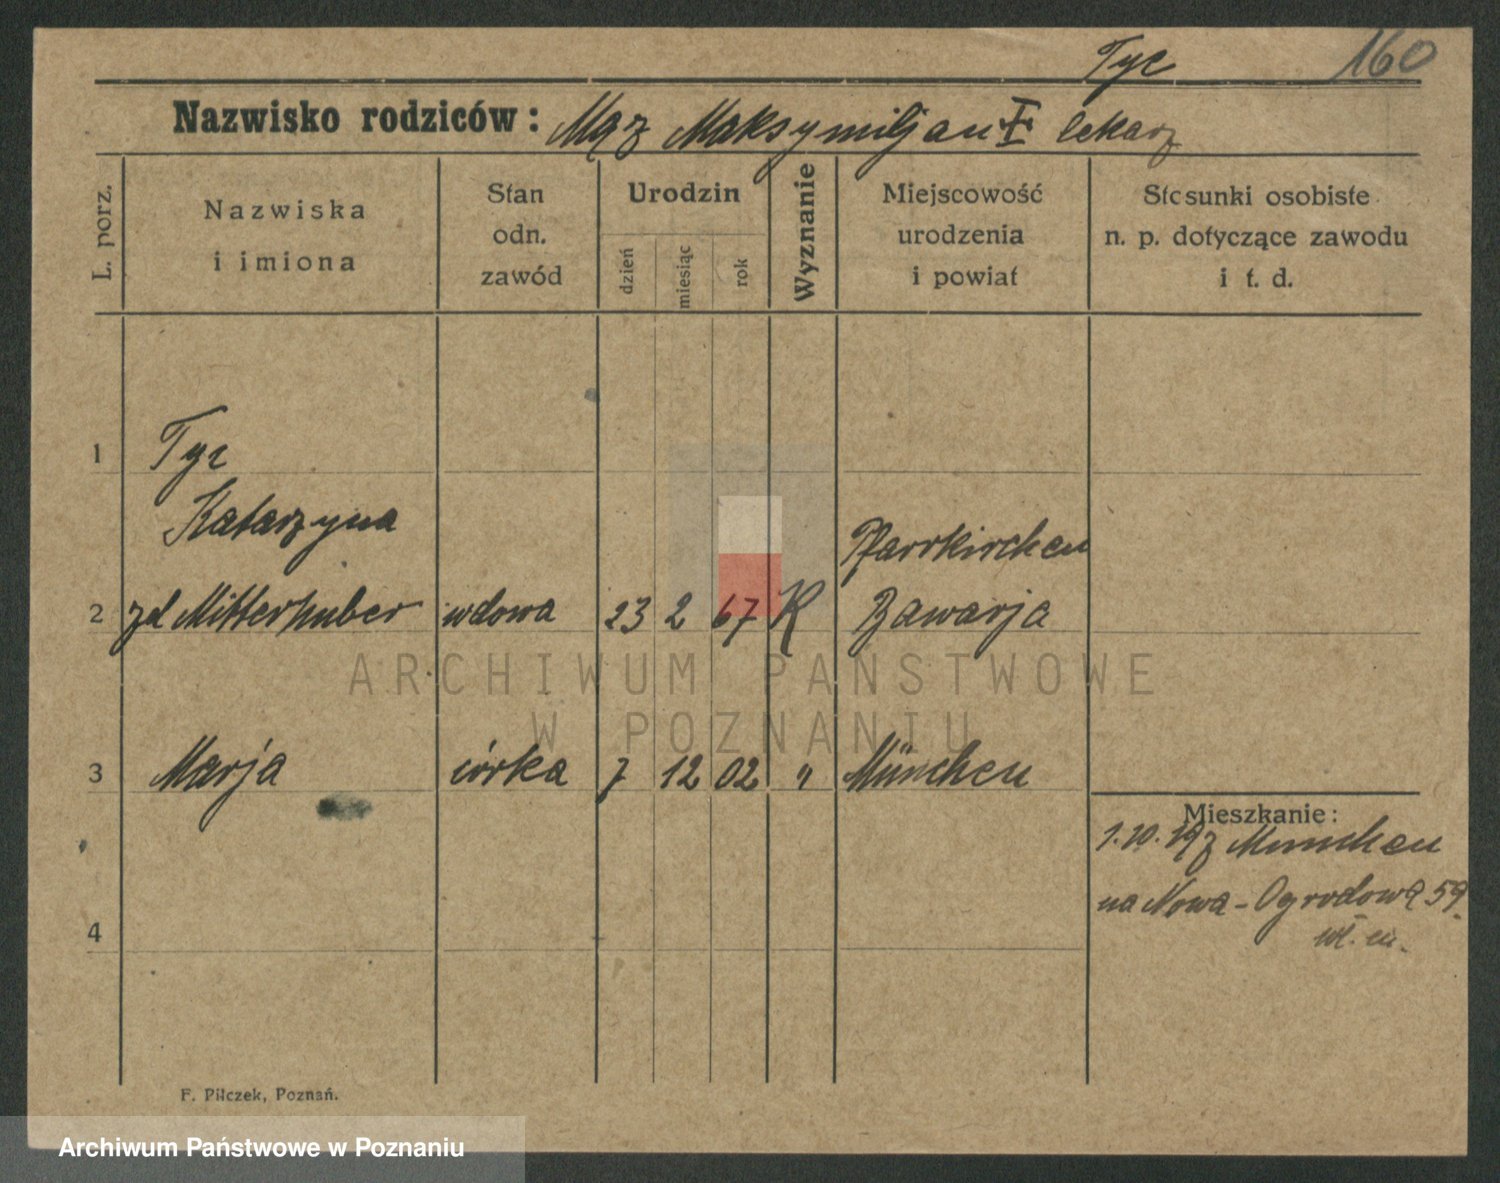 Tyc 160
Nazwisko rodziców: Mąż Maksymiljan † lekarz
L. porz.
Nazwiska
i imiona
Stan
odn.
zawód
Urodzin
dzień
miesiąc
rok
Wyznanie
Miejscowość
urodzenia
i powiat
Stosunki osobiste
n. p. dotyczące zawodu
i t. d.
1 Tyc
Katarzyna Pfarrkirchen
2 zd Mitterhuber wdowa 23 2 67 K Bawarja
ARCHIWUM PAŃSTWOWE
W POZNANIU
3 Marja córka 7 12 02 " München
Mieszkanie:
1.10.19 z Munchen
na Nowa-Ogrodowa 59
4
wł. m.
F. Pilczek, Poznań.
Archiwum Państwowe w Poznaniu